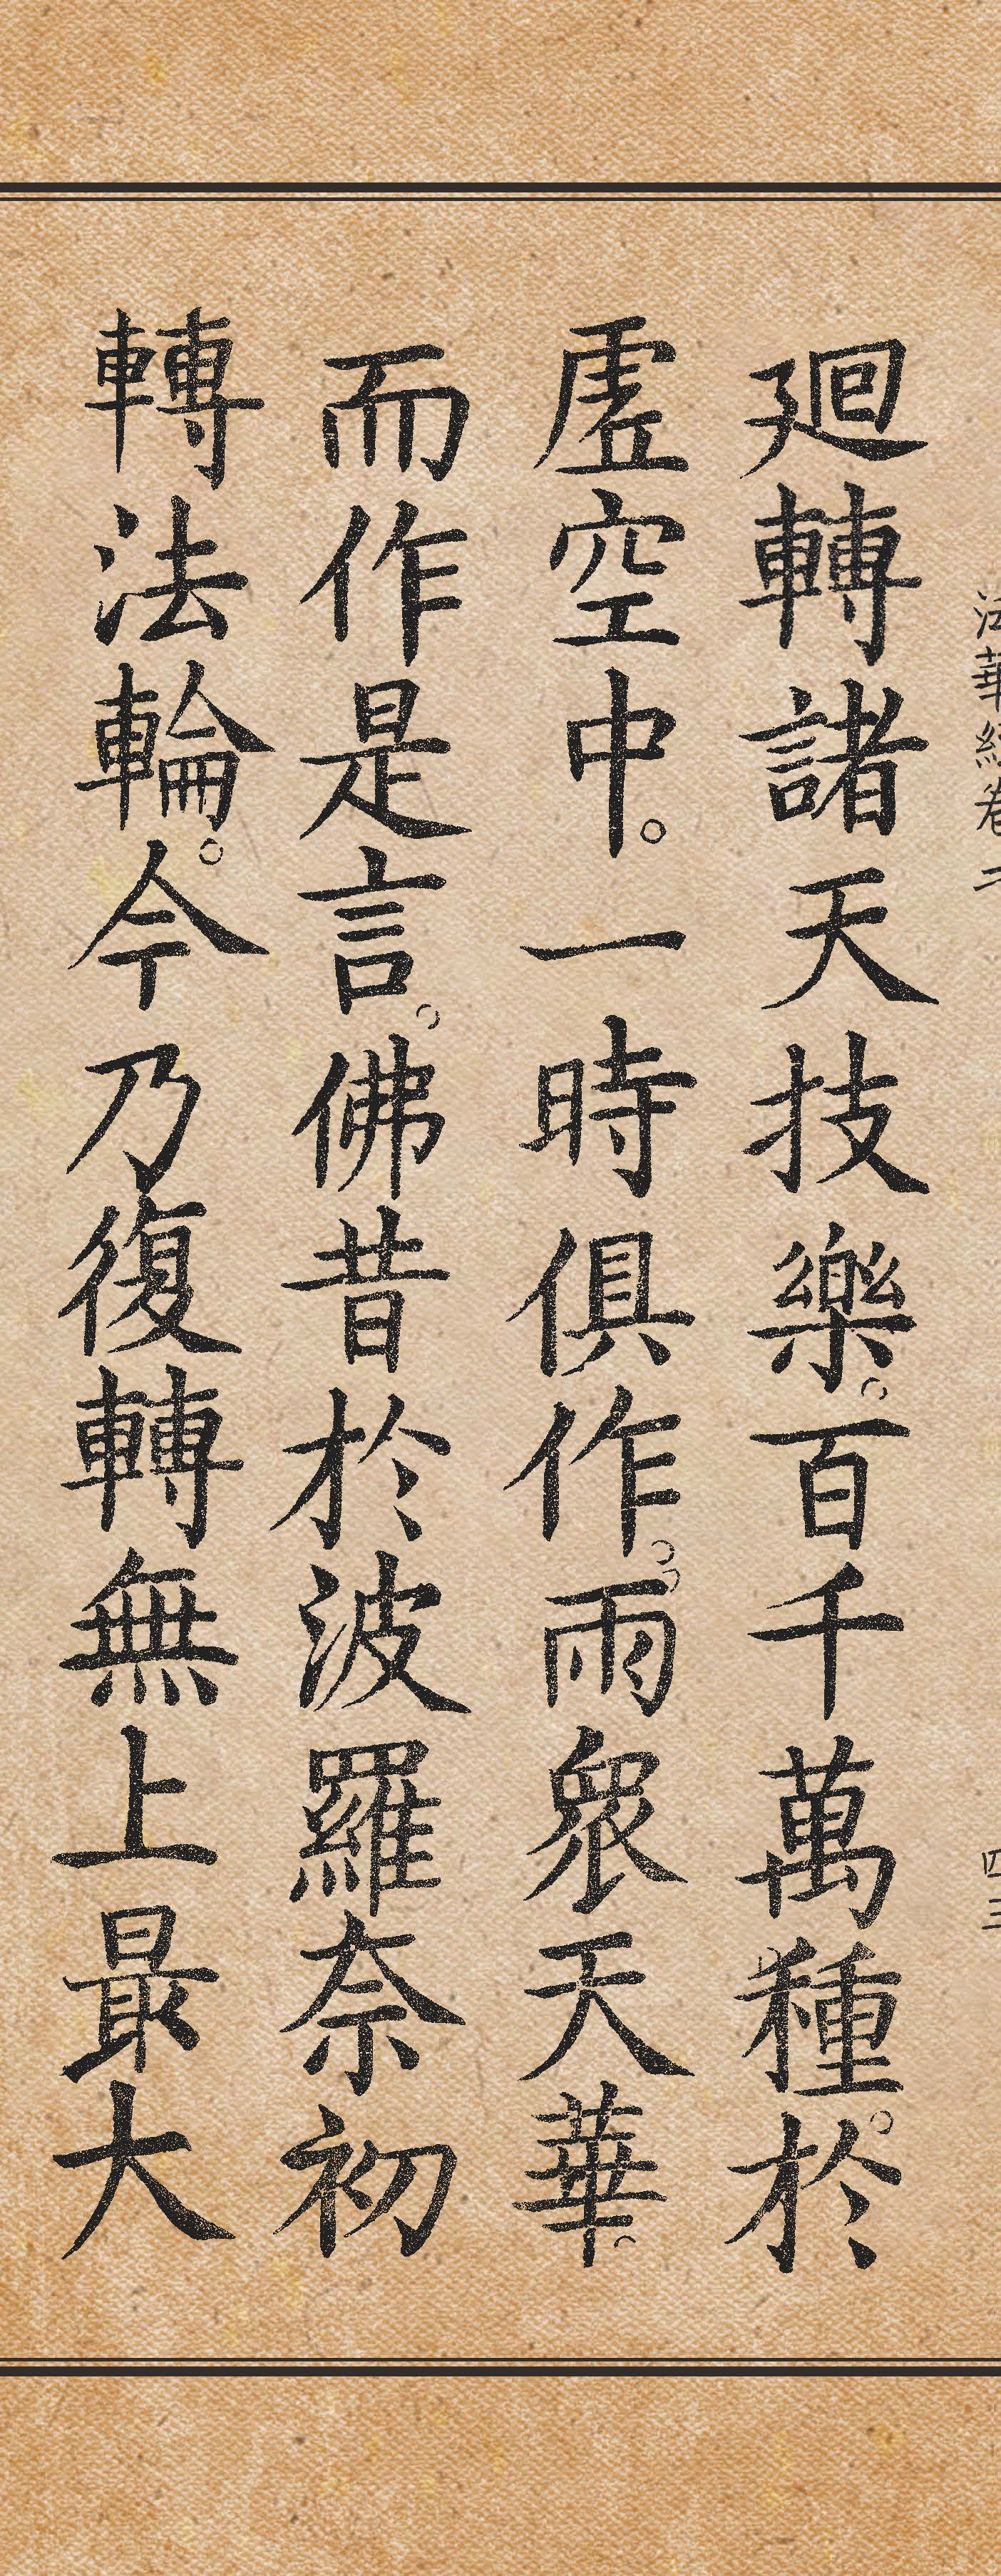 法華經卷二 四三
廻轉諸天技樂。百千萬種。於
虛空中。一時俱作。雨眾天華。
而作是言。佛昔於波羅奈初
轉法輪。今乃復轉無上最大